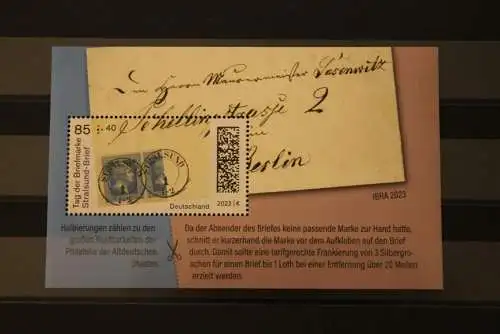 Den Herrn Maurermeister
Schellin Strasse 2
Berlin
85 + 40
Tag der Briefmarke
Stralsund-Brief
STRALSUND
STRALSUND
Deutschland
2023 | €
IBRA 2023
Halbierungen zählen zu den
großen Kostbarkeiten der
Philatelie der Altdeutschen
Staaten.
Da der Absender des Briefes keine passende Marke zur Hand hatte,
schnitt er kurzerhand die Marke vor dem Aufkleben auf den Brief
durch. Damit sollte eine tarifgerechte Frankierung von 3 Silbergro-
schen für einen Brief bis 1 Loth bei einer Entfernung über 20 Meilen
erzielt werden.